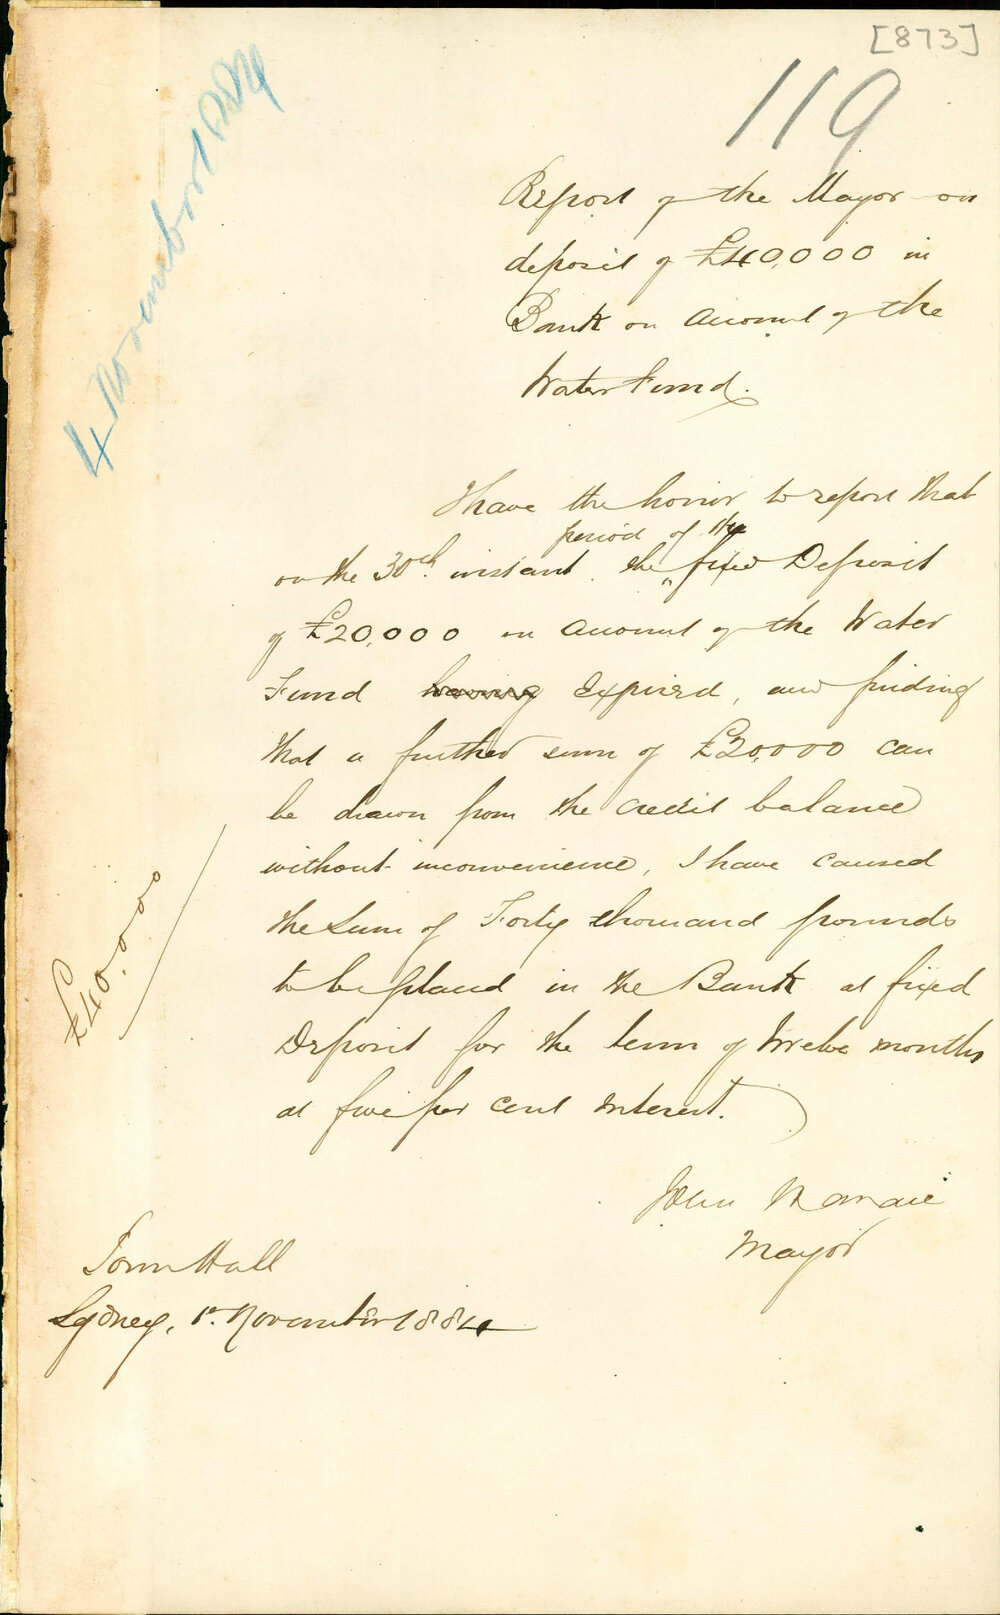 [873]
119
4 November 1884
Report of the Mayor on
deposit of £40,000 in
Bank on account of the
Water Fund.
I have the honor to report that
period of the
on the 30th instant the fixed Deposit
of £20,000 on account of the Water
Fund having expired, and finding
that a further sum of £20,000 can
be drawn from the credit balance
without inconvenience, I have caused
the sum of Forty thousand pounds
to be placed in the Bank at fixed
Deposit for the term of twelve months
at five per cent interest.
£40,000
John Hardie
Mayor
Town Hall
Sydney, 1st November 1884